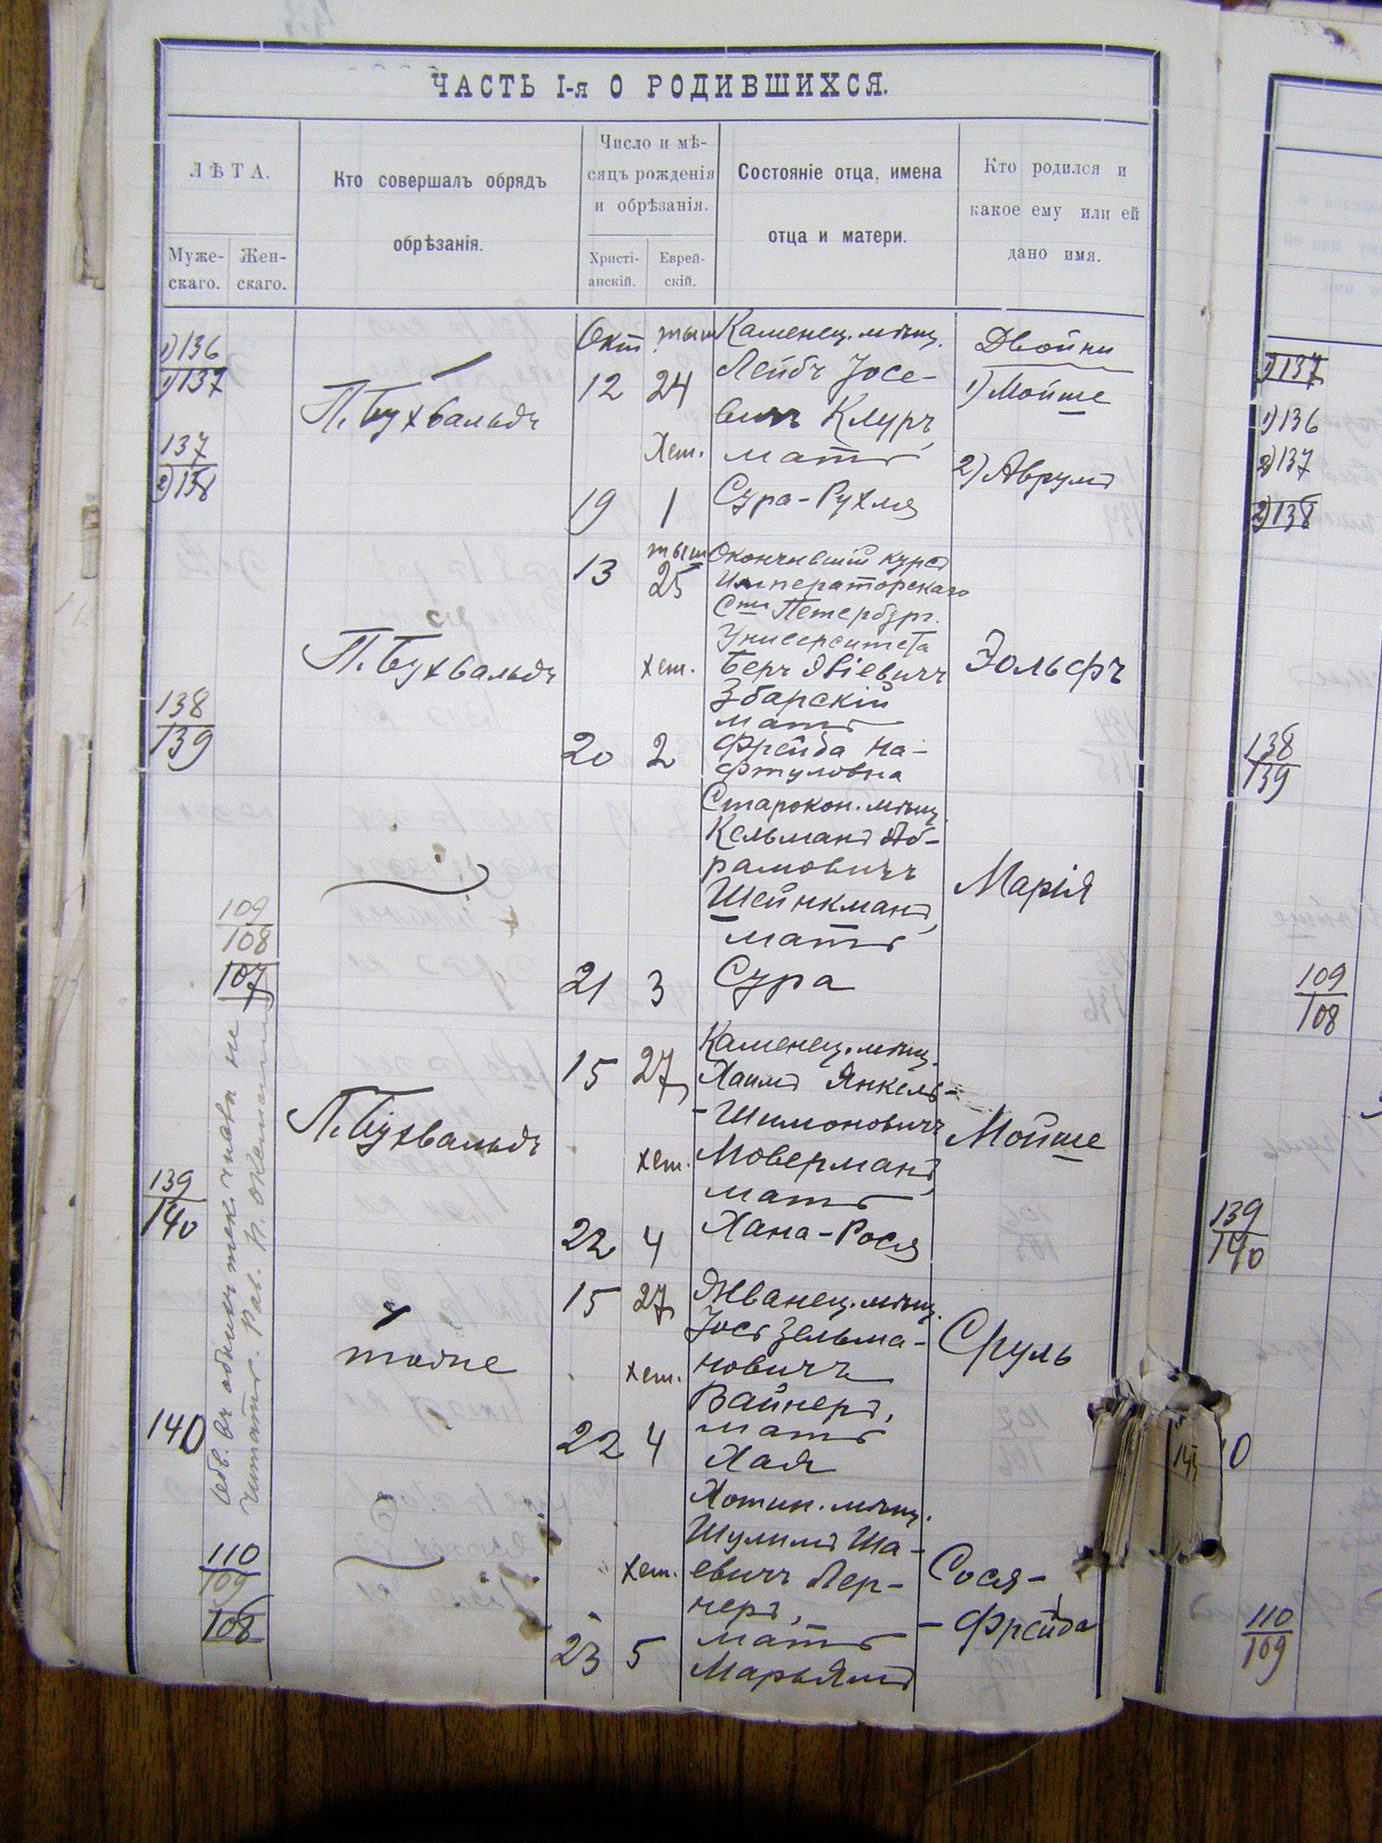 ЧАСТЬ I-я О РОДИВШИХСЯ.
ЛѢТА.
Муже-
скаго.
Жен-
скаго.
Кто совершалъ обрядъ
обрѣзанія.
Число и мѣ-
сяцъ рожденія
и обрѣзанія.
Христі-
анскій.
Еврей-
скій.
Состояніе отца, имена
отца и матери.
Кто родился и
какое ему или ей
дано имя.
1) 136
1) 137
137
2) 138
П. Бухвальдъ
Окт. тыш
12 24
Хеш.
19 1
Каменец. мѣщ.
Лейбъ Іосе-
вичъ Клуръ,
мать
Сура-Рухля
Двойни
1) Мойше
2) Аврумъ
138
139
П. Бухвальдъ
тыш
13 25
хеш.
20 2
Окончившій курсъ
Императорскаго
Петербург.
Университета
Беръ Явіевичъ
Збарскій
мать
Фрейда На-
фтуловна
Эольфъ
109
108
107
21 3
Старокон. мѣщ.
Кельманъ Аб-
рамовичъ
Шейнкманъ,
мать
Сура
Марія
139
140
П. Бухвальдъ
15 27
хеш.
22 4
Каменец. мѣщ.
Хаимъ Янкель-
-Шимоновичъ
Моверманъ,
мать
Хана-Рося
Мойше
140
тоже
15 27
хеш.
22 4
Жванец. мѣщ.
Іосъ Зельма-
новичъ
Вайнеръ,
мать
Хая
Сруль
110
109
108
хеш.
23 5
Хотин. мѣщ.
Шулимъ Ша-
евичъ Лер-
неръ,
мать
Марьямъ
Сося-
-Фрейда
не
читать. Рав.
1) 137
1) 136
2) 137
2) 138
138
139
109
108
139
140
0
145
110
109